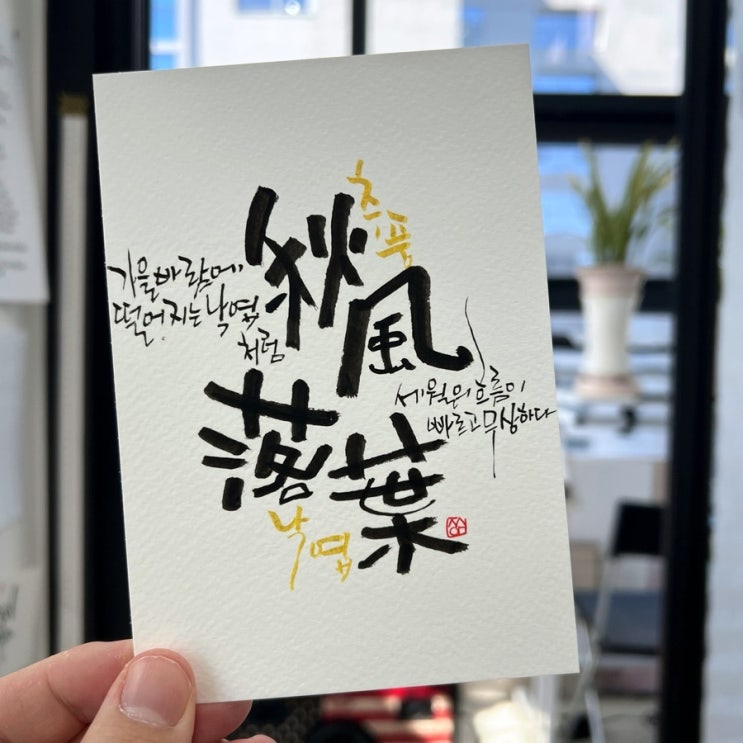 추풍
秋風
가을바람에
떨어지는 낙엽
처럼
세월의 흐름이
빠르고 무상하다
落葉
낙엽